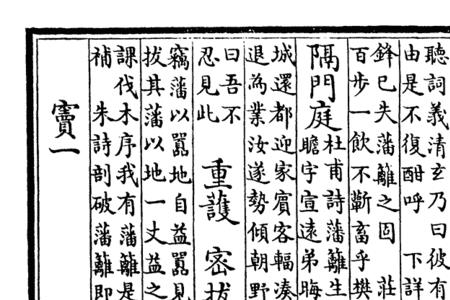 聽詞義清玄乃曰彼有
由是不復酣呼 下詳
鋒已失藩籬之固 莊
百步一飲不蘄畜乎樊
隔門庭
杜甫詩藩籬生
瞻字宣遠弟晦
城還都迎家賓客輻湊
退為業汝遂勢傾朝野
曰吾不
忍見此
重護 密拔
竊藩以囂地自益囂見
拔其藩以地一丈益之
課伐木序我有藩籬是
補 朱詩剖破藩籬即
竇一